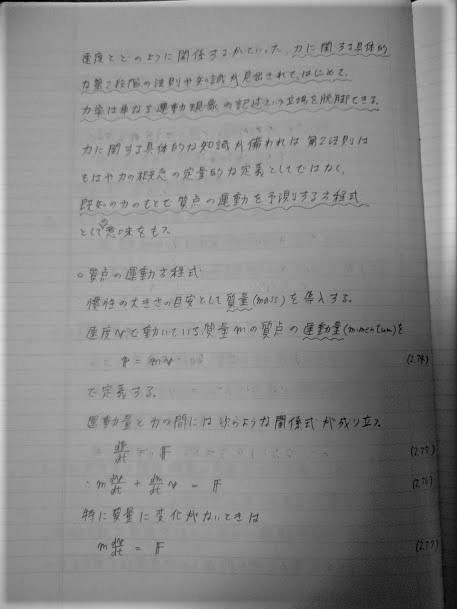 速度とどのように関係するかといった、力に関する具体的
力第2段階の法則や知識が見出されて、はじめて、
力学は単なる運動現象の記述という立場を脱却できる。
力に関する具体的な知識が備われば第2法則は
もはや力の概念の定量的な定義としてではなく、
既知の力のもとで質点の運動を予測する方程式
としての意味をもつ。
○質点の運動方程式
慣性の大きさの目安として質量(mass)を導入する。
速度vで動いている質量mの質点の運動量(momentum)を
P = mv (2.74)
で定義する。
運動量と力の間には次のような関係式が成り立つ。
dp/dt = F (2.75)
∴ m dv/dt + dm/dt v = F (2.76)
特に質量に変化がないときは
m dv/dt = F (2.77)